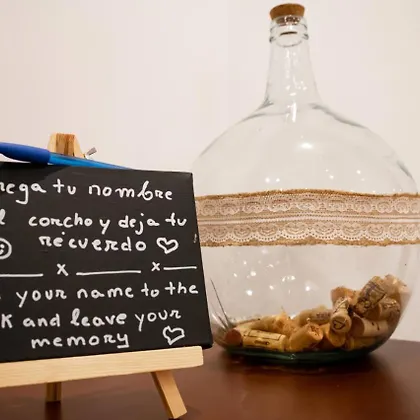 rega tu nombre
l corcho y deja tu
recuerdo
x x
your name to the
k and leave your
memory